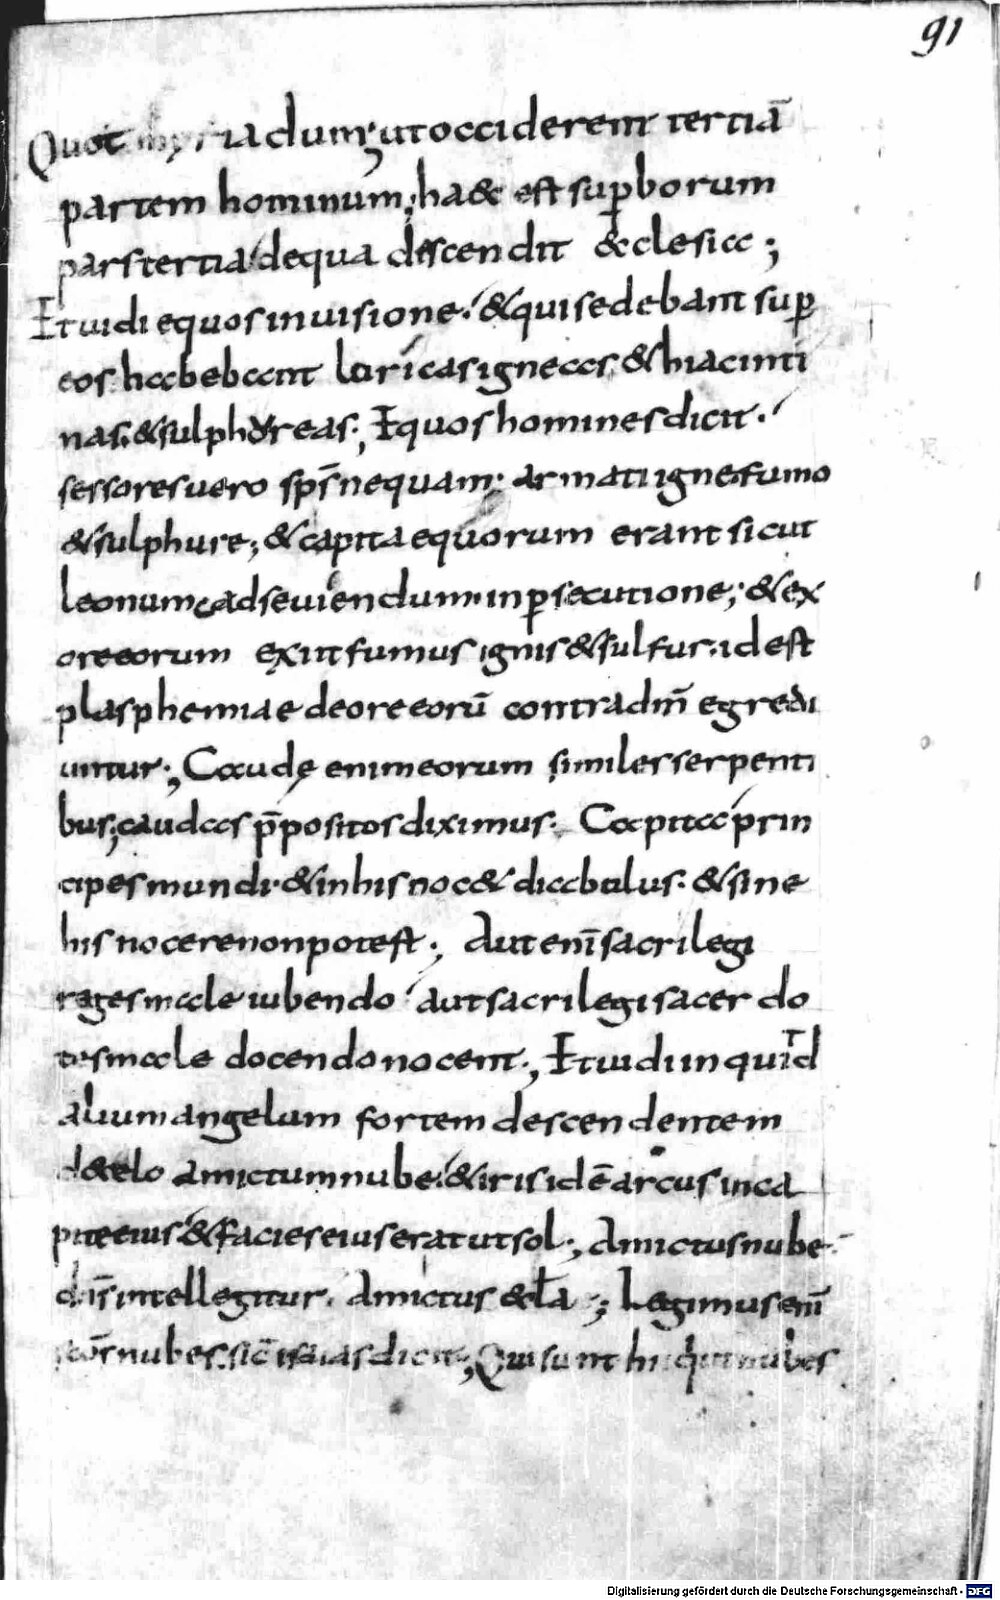 91
Quot myriadum; ut occiderent tertiā
partem hominum; haec est sup̱borum
pars tertia de qua descendit ecclesia;
Et uidi equos in uisione. & qui sedebant sup̱
eos. habebant loricas igneas. & hiacinti
nas. & sulphoreas; Equos homines dicit.
sessores uero sp̄s nequam. armati igne. fumo
& sulphure; & capita equorum erant sicut
leonum. ad seuiendum. in p̱secutione; & ex
ore eorum exiit fumus ignis & sulfur. id est
plasphemiae de ore eorū contra dn̄m egredi
untur; Caudę enim eorum similes serpenti
bus; caudas p̄positos diximus. Capita prin
cipes mundi. & in his nocet diabulus. & sine
his nocere non potest; Aut enī sacrilegi
reges male iubendo aut sacrilegi sacerdo
tes male docendo nocent; Et uidi inquid
alium angelum fortem descendentem
de celo amictum nube. & iris id ē arcus in ca
pite eius & facies eius erat ut sol; Amictus nube
dn̄s intellegitur. Amictus et̄la; Legimus enī
scōs nubes. sic̄ isaias dicit; Qui sunt hi qui nubes
Digitalisierung gefördert durch die Deutsche Forschungsgemeinschaft - DFG